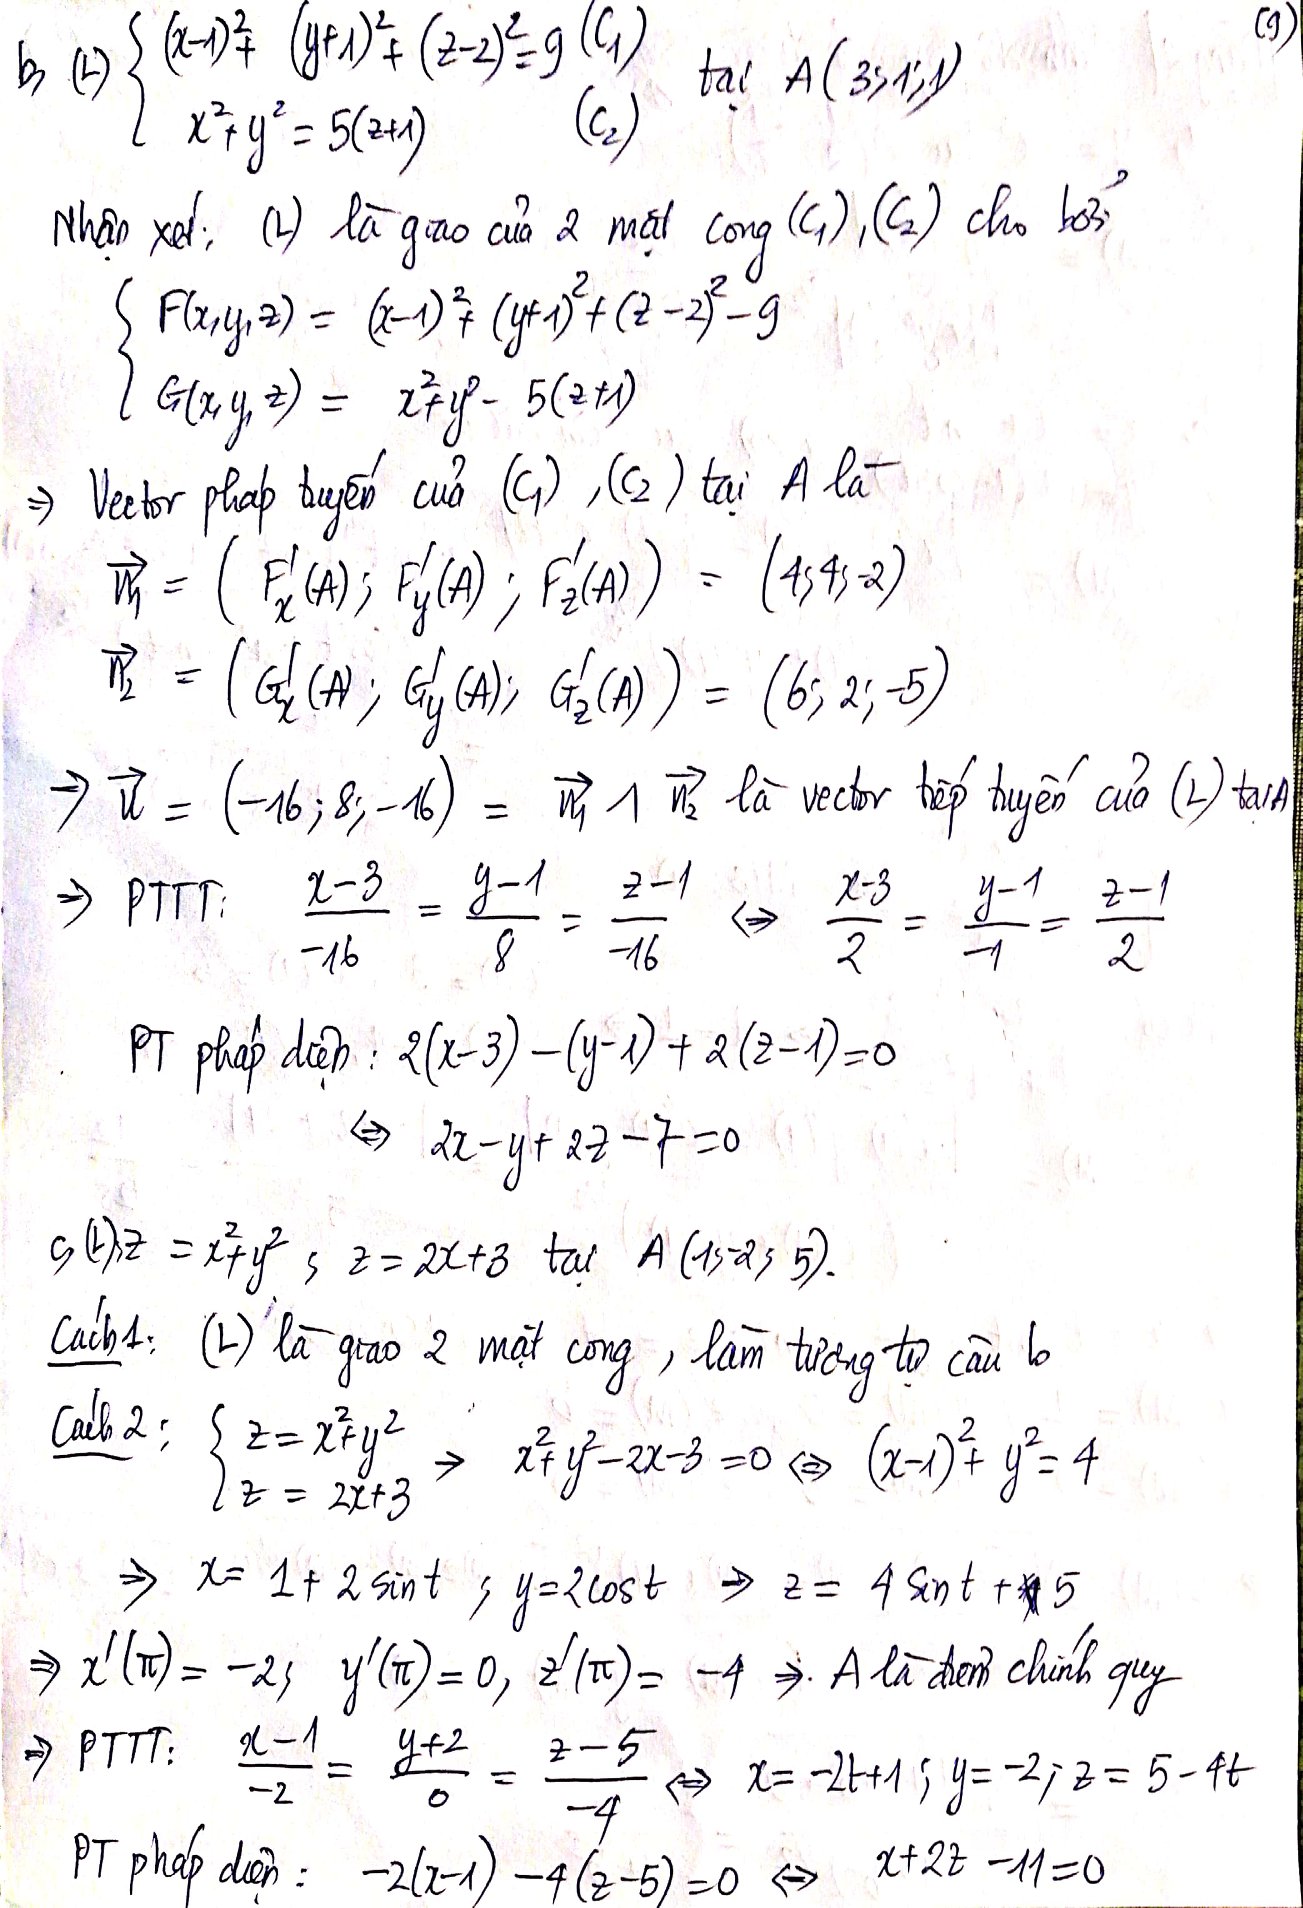 (9)
b, (L) { (x-1)² + (y+1)² + (z-2)² = 9 (C₁)
x² + y² = 5(z+1) (C₂) tại A(3;1;1)
Nhận xét: (L) là giao của 2 mặt cong (C₁), (C₂) cho bởi
{ F(x,y,z) = (x-1)² + (y+1)² + (z-2)² - 9
G(x,y,z) = x² + y² - 5(z+1)
⇒ Vector pháp tuyến của (C₁), (C₂) tại A là
n₁→ = ( F'x(A); F'y(A); F'z(A) ) = (4;4;-2)
n₂→ = ( G'x(A); G'y(A); G'z(A) ) = (6;2;-5)
→ u→ = (-16;8;-16) = n₁→ ∧ n₂→ là vector tiếp tuyến của (L) tại A
⇒ PTTT: (x-3)/-16 = (y-1)/8 = (z-1)/-16 ⇔ (x-3)/2 = (y-1)/-1 = (z-1)/2
PT pháp diện: 2(x-3) - (y-1) + 2(z-1) = 0
⇔ 2x - y + 2z - 7 = 0
c, (L): z = x² + y²; z = 2x+3 tại A(1;-2;5).
Cách 1: (L) là giao 2 mặt cong, làm tương tự câu b
Cách 2: { z = x² + y²
z = 2x+3 → x² + y² - 2x - 3 = 0 ⇔ (x-1)² + y² = 4
⇒ x = 1 + 2sint; y = 2cost → z = 4sint + 5
⇒ x'(π) = -2; y'(π) = 0, z'(π) = -4 ⇒ A là điểm chính quy
⇒ PTTT: (x-1)/-2 = (y+2)/0 = (z-5)/-4 ⇔ x = -2t+1; y = -2; z = 5-4t
PT pháp diện: -2(x-1) - 4(z-5) = 0 ⇔ x + 2z - 11 = 0